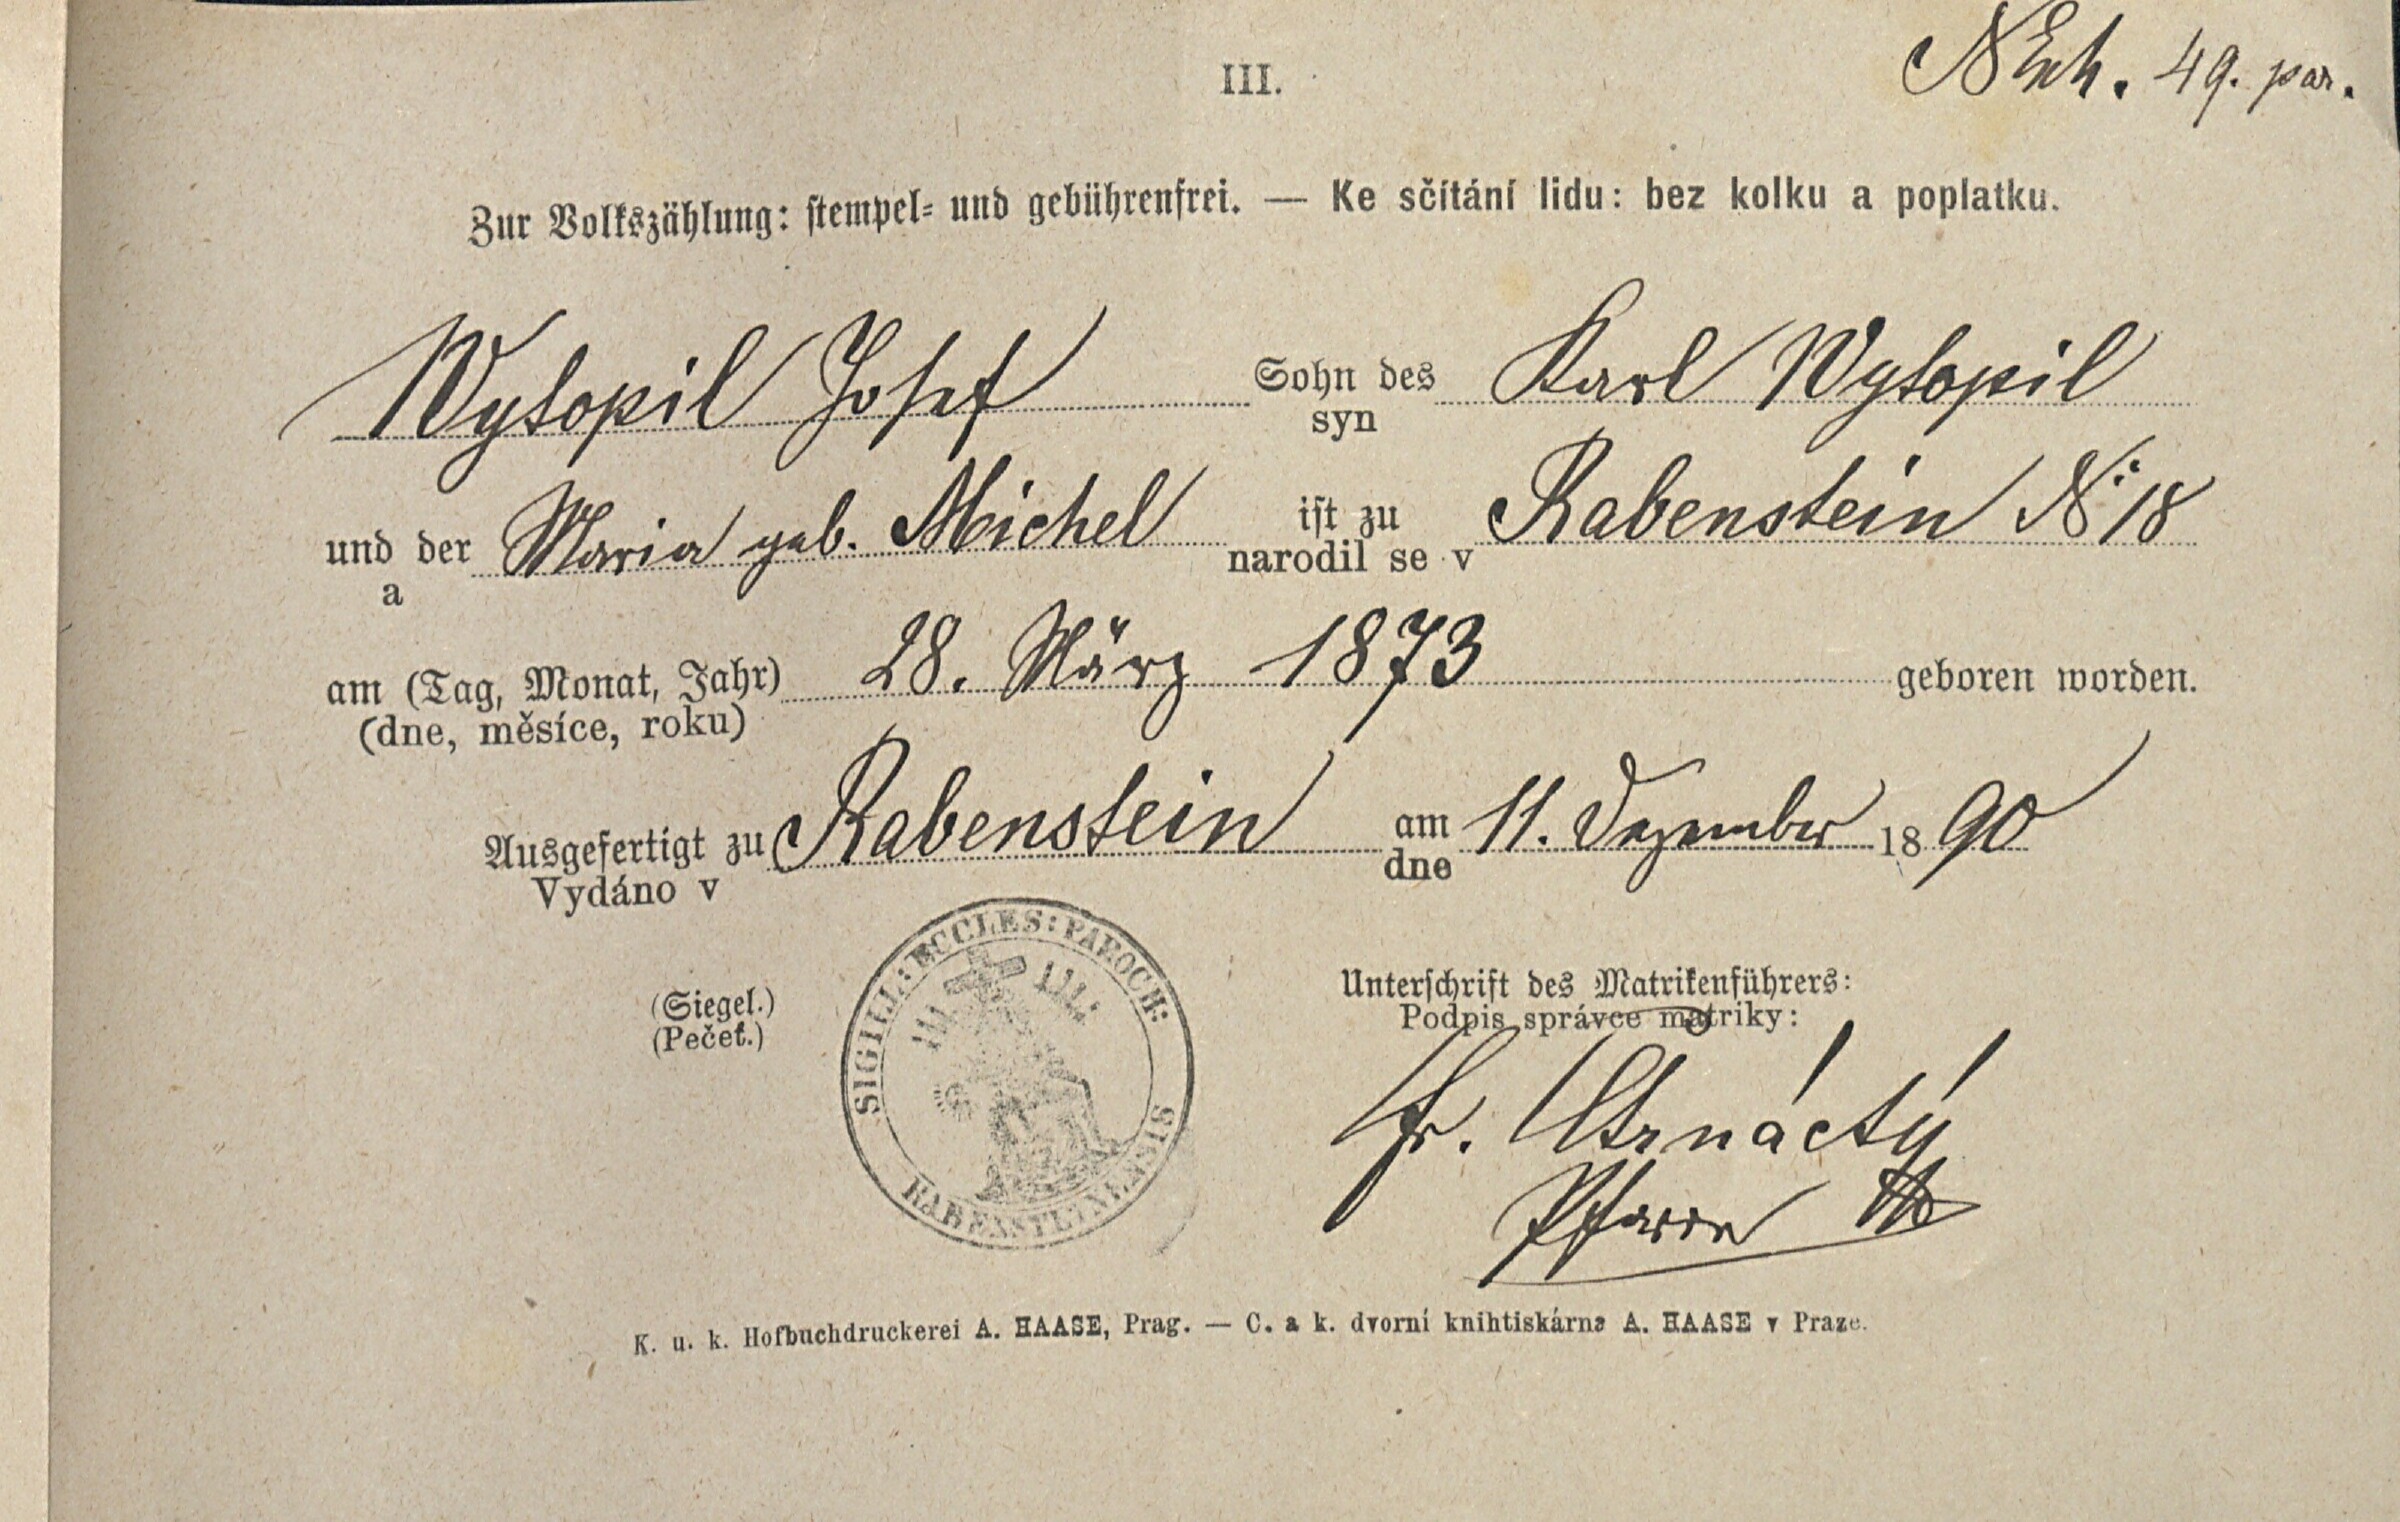 III.
NExh. 49. par.
Zur Volkszählung: stempel- und gebührenfrei. — Ke sčítání lidu: bez kolku a poplatku.
Wytopil Josef Sohn des Karl Wytopil
syn
und der Maria geb. Michel ist zu Rabenstein N: 18
a narodil se v
am (Tag, Monat, Jahr) 28. März 1873 geboren worden.
(dne, měsíce, roku)
Ausgefertigt zu Rabenstein am 11. Dezember 1890
Vydáno v dne
SIGILL: ECCLES: PAROCH:
RABENSTEINENSIS
(Siegel.)
(Pečeť.)
Unterschrift des Matrikenführers:
Podpis správce matriky:
Fr. Strnáctý
Pfarrer
K. u. k. Hofbuchdruckerei A. HAASE, Prag. — C. a k. dvorní knihtiskárna A. HAASE v Praze.